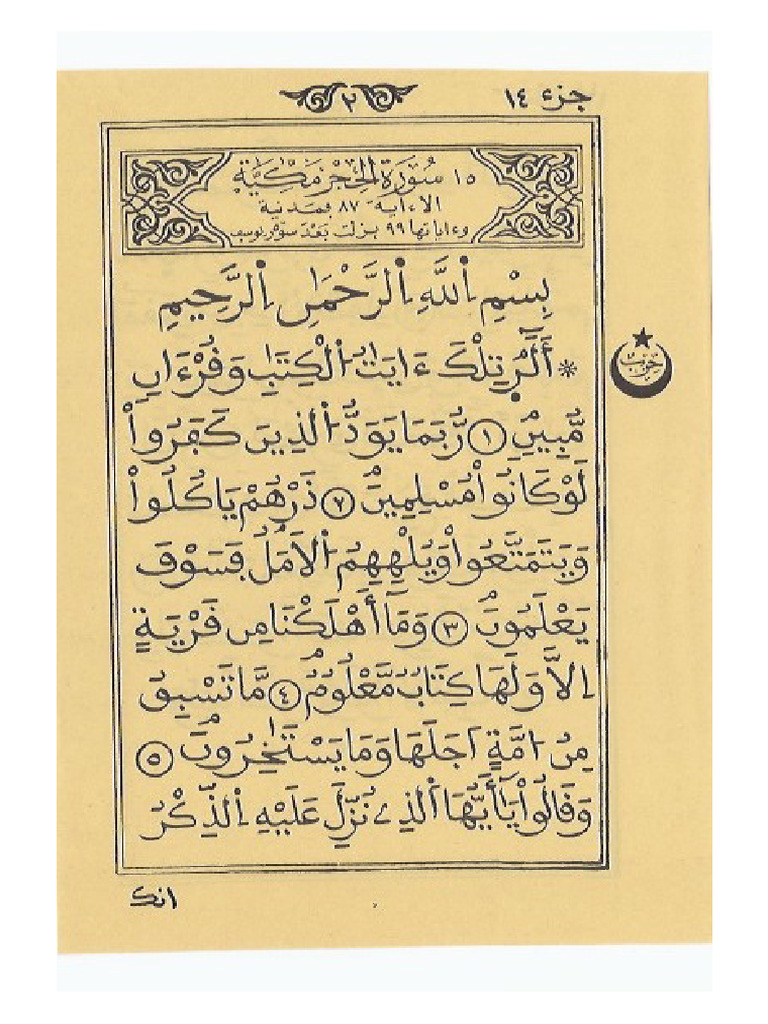 جزء ١٤
٢
١٥ سُورَةُ الْحِجْرِ مَكِّيَّةٌ
الا ءاية ٨٧ فمدنية
وءاياتها ٩٩ نزلت بعد سورة يوسف
بِسْمِ اِ۬للَّهِ اِ۬لرَّحْمَٰنِ اِ۬لرَّحِيمِ
* أَلَٓرۖ تِلْكَ ءَايَٰتُ اُ۬لْكِتَٰبِ وَقُرْءَانٍ
حزب
مُّبِينٍۖ ١ رُّبَمَا يَوَدُّ اُ۬لذِينَ كَفَرُواْ
لَوْ كَانُواْ مُسْلِمِينَۖ ٢ ذَرْهُمْ يَاكُلُواْ
وَيَتَمَتَّعُواْ وَيُلْهِهِمُ اُ۬لَامَلُۖ فَسَوْفَ
يَعْلَمُونَۖ ٣ وَمَآ أَهْلَكْنَا مِن قَرْيَةٍ
اِلَّا وَلَهَا كِتَابٞ مَّعْلُومٞۖ ٤ مَّا تَسْبِقُ
مِنُ ا۟مَّةٍ اَجَلَهَا وَمَا يَسْتَٰخِرُونَۖ ٥
وَقَالُواْ يَٰٓأَيُّهَا اَ۬لذِے نُزِّلَ عَلَيْهِ اِ۬لذِّكْرُ
انك